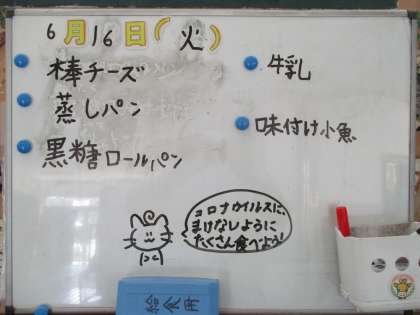 6月16日(火)
棒チーズ
蒸しパン
黒糖ロールパン
牛乳
味付け小魚
コロナウイルスに、
まけなしように
たくさん食べよう!